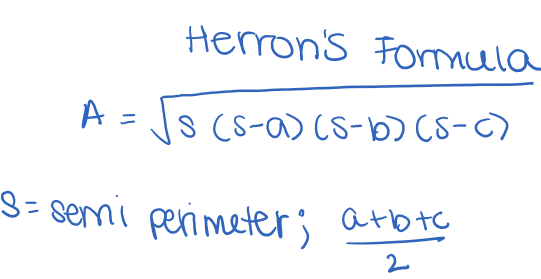 Herron's Formula
A = √s (s-a) (s-b) (s-c)
s = semi perimeter; a+b+c
2